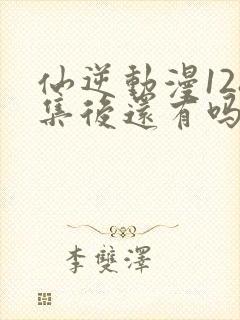 仙逆動漫12
集後還有吗
李雙澤